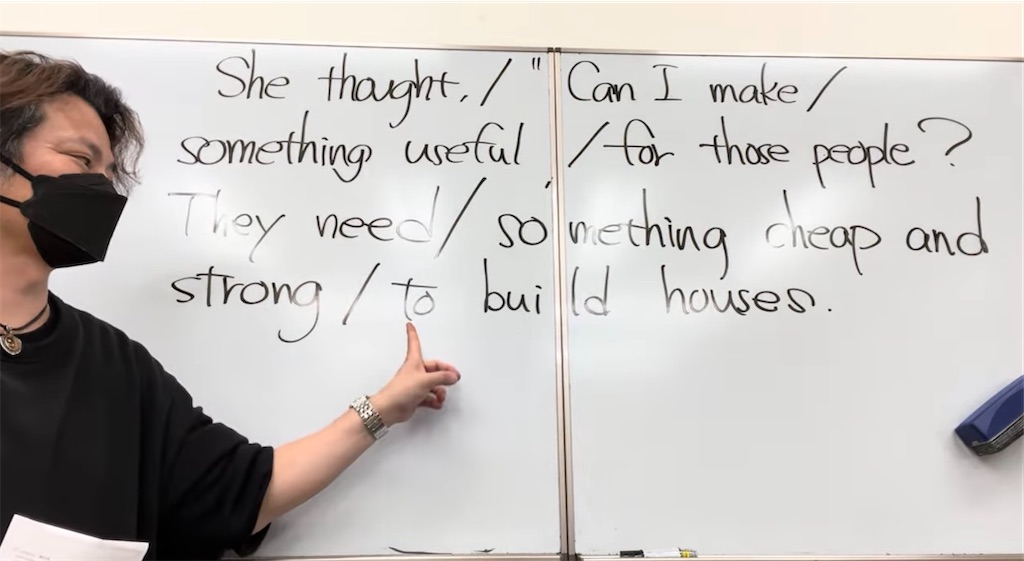 She thought, / " Can I make /
something useful / for those people ?
They need / something cheap and
strong / to build houses.